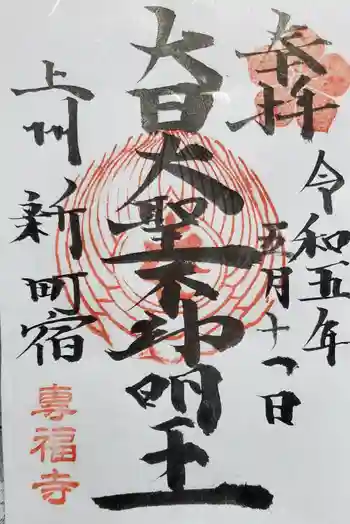 奉拝
令和五年
五月十一日
大日大聖不動明王
上州 新町宿
専福寺